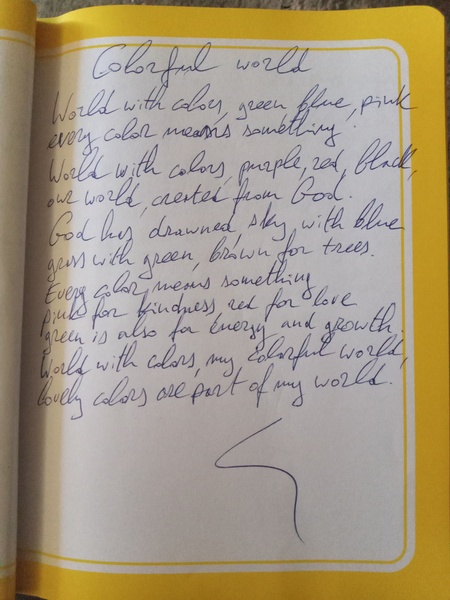 Colorful world
World with colors, green blue, pink
every color means something.
World with colors, purple, red, black,
our world, created from God.
God has drawned, sky, with blue
grass with green, brown for trees.
Every color means something
pink for kindness red for love
green is also for energy and growth.
World with colors, my colorful world,
lovely colors are part of my world.